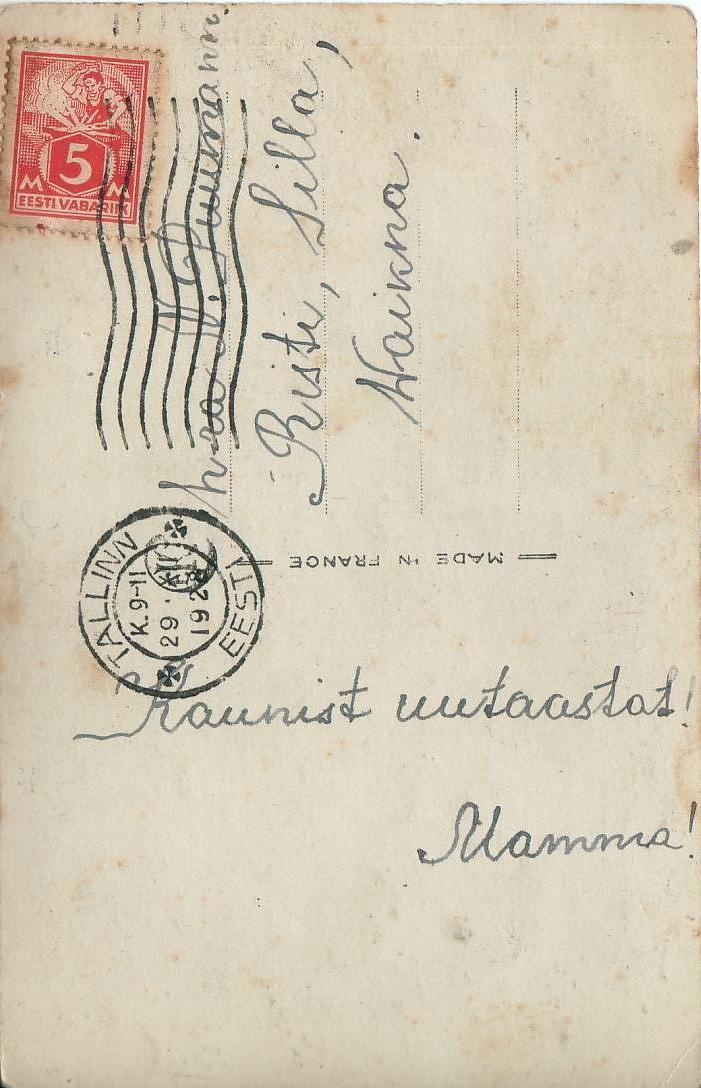 5
M M
EESTI VABARIIK
hra N. Puumann.
Risti, Silla,
Waikna.
MADE IN FRANCE
TALLINN
K.9-11
29
192
EESTI
Kaunist uutaastat!
Mamma!